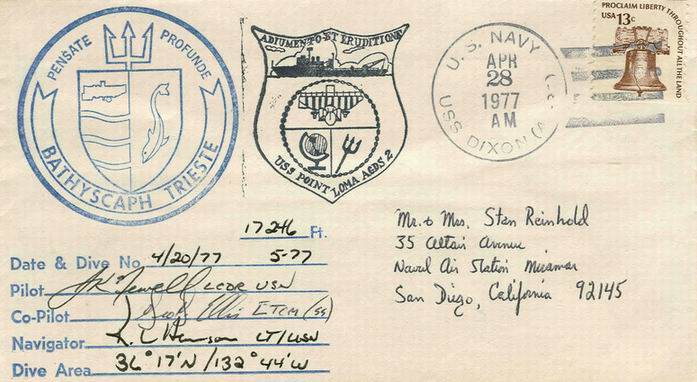 PENSATE PROFUNDE
BATHYSCAPH TRIESTE
ADIUMENTO ET ERUDITIONE
USS POINT LOMA AGDS 2
U.S. NAVY
APR
28
1977
AM
USS DIXON (A
PROCLAIM LIBERTY THROUGHOUT ALL THE LAND
USA 13c
17246 Ft.
Date & Dive No. 4/20/77 5-77
Pilot LCDR USN
Co-Pilot Ellis ETCM (SS)
Navigator LT/USN
Dive Area 36° 17'N / 132° 44'W
Mr. & Mrs. Stan Reinhold
35 Altair Avenue
Naval Air Station Miramar
San Diego, California 92145